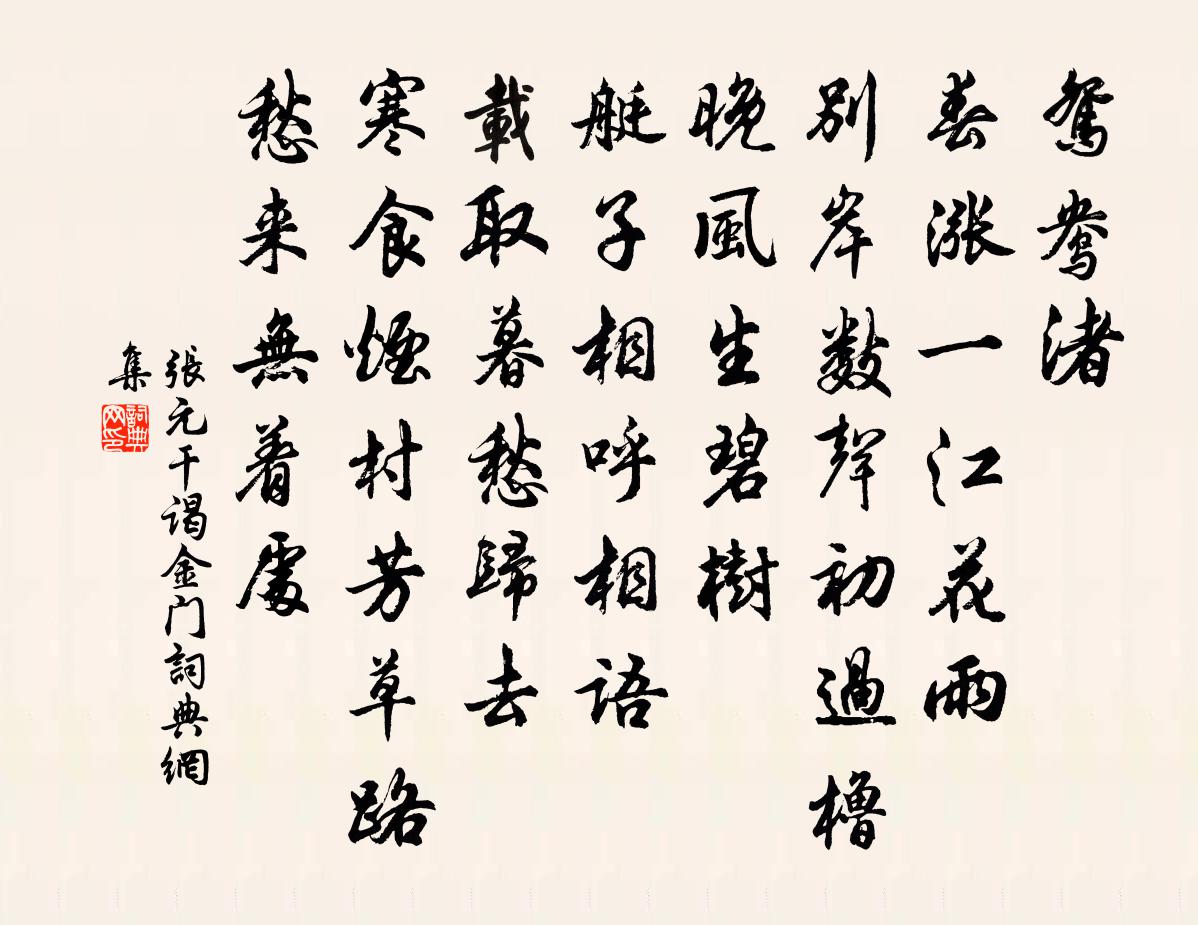 鴛鴦渚
春漲一江花雨
別岸數聲初過櫓
晚風生碧樹
艇子相呼相語
載取暮愁歸去
寒食煙村芳草路
愁来無着處
張元干谒金门詞典網
集
詞典网印